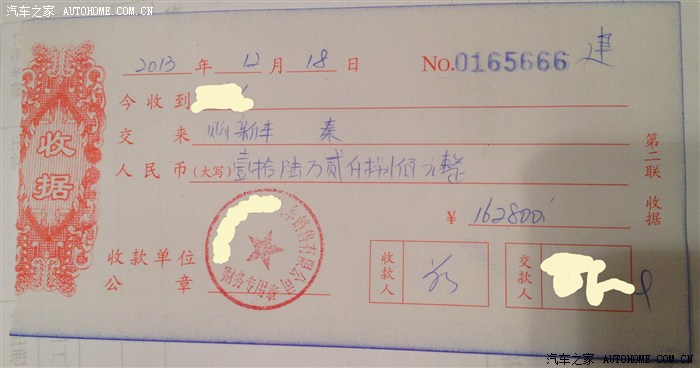 汽车之家 AUTOHOME.COM.CN
收据
2013 年 12 月 18 日 No.0165666 建
今收到
交来 购新丰 秦
人民币(大写)壹拾陆万贰仟捌佰元整
¥ 162800
第二联 收据
收款单位
公章
销售有限公司
财务专用章
收款人
交款人
汽车之家 AUTOHOME.COM.CN